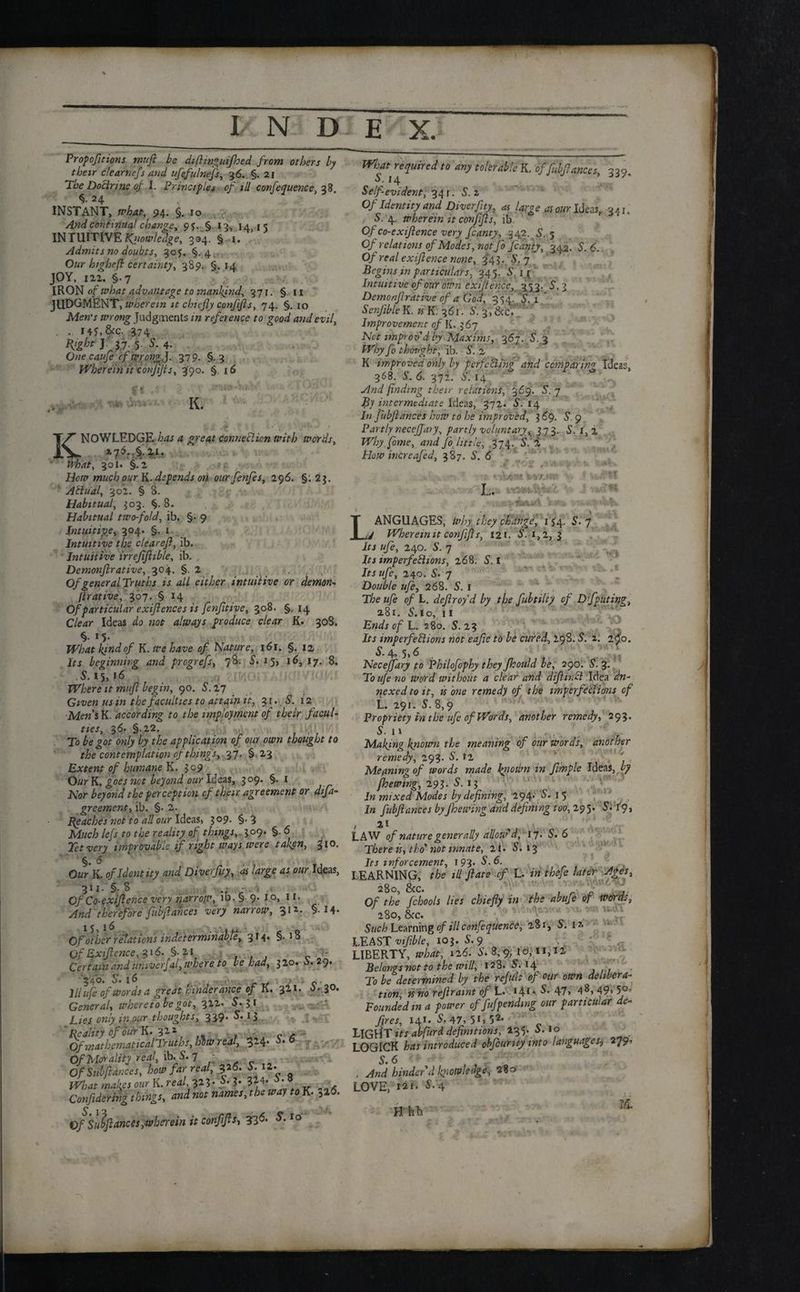 I N D E X.
Propositions must be distinguished from others by
their clearness and usefulness, 36. §. 21
The Doctrine of I. Principles of ill consequence, 38.
§. 24
INSTANT, what, 94. §. 10
And continual change, 95. §. 13, 14, 15
INTUITIVE Knowledge, 304. § 1.
Admits no doubts, 305. §. 4
Our highest certainty, 389. §. 14
JOY, 122. §. 7
IRON of what advantage to mankind, 371. § 11
JUDGMENT, wherein it chiefly consists, 74. §. 10
Men's wrong Judgments in reference to good and evil,
145, &c. 374
Right J 37. 5 S. 4.
One cause of wrong J. 379. §. 3
Wherein it consists, 390. § 16
K.
KNOWLEDGE has a great connection with words,
276. §. 21.
What, 301. §. 2
How much our K. depends on our senses, 296. §. 23.
Actual, 302. § 8.
Habitual, 303. §. 8.
Habitual two-fold, ib. §. 9
Intuitive, 304. §. 1
Intuitive the clearest, ib.
Intuitive irresistible, ib.
Demonstrative, 304. §. 2
Of general Truths is all either intuitive or demon-
strative, 307. § 14
Of particular existences is sensitive, 308. §. 14
Clear Ideas do not always produce clear K. 308.
§. 15.
What kind of K. we have of Nature, 161. §. 12
Its beginning and progress, 78. S. 15, 16, 17. 8.
S. 15, 16
Where it must begin, 90. S. 27
Given us in the faculties to attain it, 31. S. 12
Men's K. according to the imployment of their facul-
ties, 36. §. 22.
To be got only by the application of our own thought to
the contemplation of things, 37. § 23
Extent of humane K. 309
Our K. goes not beyond our Ideas, 309. §. 1
Nor beyond the perception of their agreement or disa-
greement, ib. §. 2.
Reaches not to all our Ideas, 309. §. 3
Much less to the reality of things, 309. §. 6
Yet very improvable if right ways were taken, 310.
§. 6
Our K. of Identity and Diversity, as large as our Ideas,
311. §. 8
Of Co-existence very narrow, ib. §. 9. 10, 11.
And therefore substances very narrow, 312. §. 14.
15, 16
Of other relations indeterminable, 314. §. 18
Of Existence, 316. §. 21
Certain and universal, where to be had, 320. S. 29.
340. S. 16
Ill use of words a great hinderance of K. 321. S. 30.
General, where to be got, 322. S. 31
Lies only in our thoughts, 339. S. 13
Reality of our K. 322
Of mathematical Truths, how real, 324. S. 6
Of Morality real, ib. S. 7
Of Substances, how far real, 326. S. 12.
What makes our K. real, 323. S. 3. 324. S. 8
Considering things, and not names, the way to K. 326.
S. 13
Of Substances, wherein it consists, 336. S. 10
What required to any tolerable K. of substances, 339.
S. 14
Self-evident, 341. S. 2
Of Identity and Diversity, as large as our Ideas, 341.
S. 4. wherein it consists, ib.
Of co-existence very scanty, 342. S. 5
Of relations of Modes, not so scanty, 342. S. 6.
Of real existence none, 343. S. 7
Begins in particulars, 345. S. 11
Intuitive of our own existence, 353. S. 3
Demonstrative of a God, 354. S. 1
Sensible K. is K. 361. S. 3, &c.
Improvement of K. 367
Not improv'd by Maxims, 367. S. 3
Why so thought, ib. S. 2
K improved only by perfecting and comparing Ideas,
368. S. 6. 372. S. 14
And finding their relations, 369. S. 7
By intermediate Ideas, 372. S. 14
In substances how to be improved, 369. S. 9
Partly necessary, partly voluntary, 373. S. 1, 2
Why some, and so little, 374. S. 2
How increased, 387. S. 6
L.
LANGUAGES, why they change, 154. S. 7
Wherein it consists, 121. S. 1, 2, 3
Its use, 240. S. 7
Its imperfections, 268. S. 1
Its use, 240. S. 7
Double use, 268. S. 1
The use of L. destroy'd by the subtilty of Disputing,
281. S. 10, 11
Ends of L. 280. S. 23
Its imperfections not easie to be cured, 298. S. 2. 290.
S. 4, 5, 6
Necessary to Philosophy they should be, 290. S. 3.
To use no word without a clear and distinct Idea an-
nexed to it, is one remedy of the imperfections of
L. 291. S. 8, 9
Propriety in the use of Words, another remedy, 293.
S. 11
Making known the meaning of our words, another
remedy, 293. S. 12
Meaning of words made known in simple Ideas, by
shewing, 293. S. 13
In mixed Modes by defining, 294. S. 15
In substances by shewing and defining too, 295. S. 19,
21
LAW of nature generally allow'd, 17. S. 6
There is, tho' not innate, 21. S. 13
Its inforcement, 193. S. 6.
LEARNING, the ill state of L. in these later Ages,
280, &c.
Of the schools lies chiefly in the abuse of words,
280, &c.
Such Learning of ill consequence, 281, S. 12
LEAST visible, 103. S. 9
LIBERTY, what, 126. S. 8, 9, 10, 11, 12
Belongs not to the will, 128. S. 14
To be determined by the result of our own delibera-
tion, is no restraint of L. 141. S. 47, 48, 49, 50.
Founded in a power of suspending our particular de-
sires, 141. S. 47, 51, 52.
LIGHT its absurd definitions, 235. S. 10
LOGICK has introduced obscurity into languages, 279.
S. 6
And hinder'd knowledge, 280
LOVE, 121. S. 4
H hh
M.